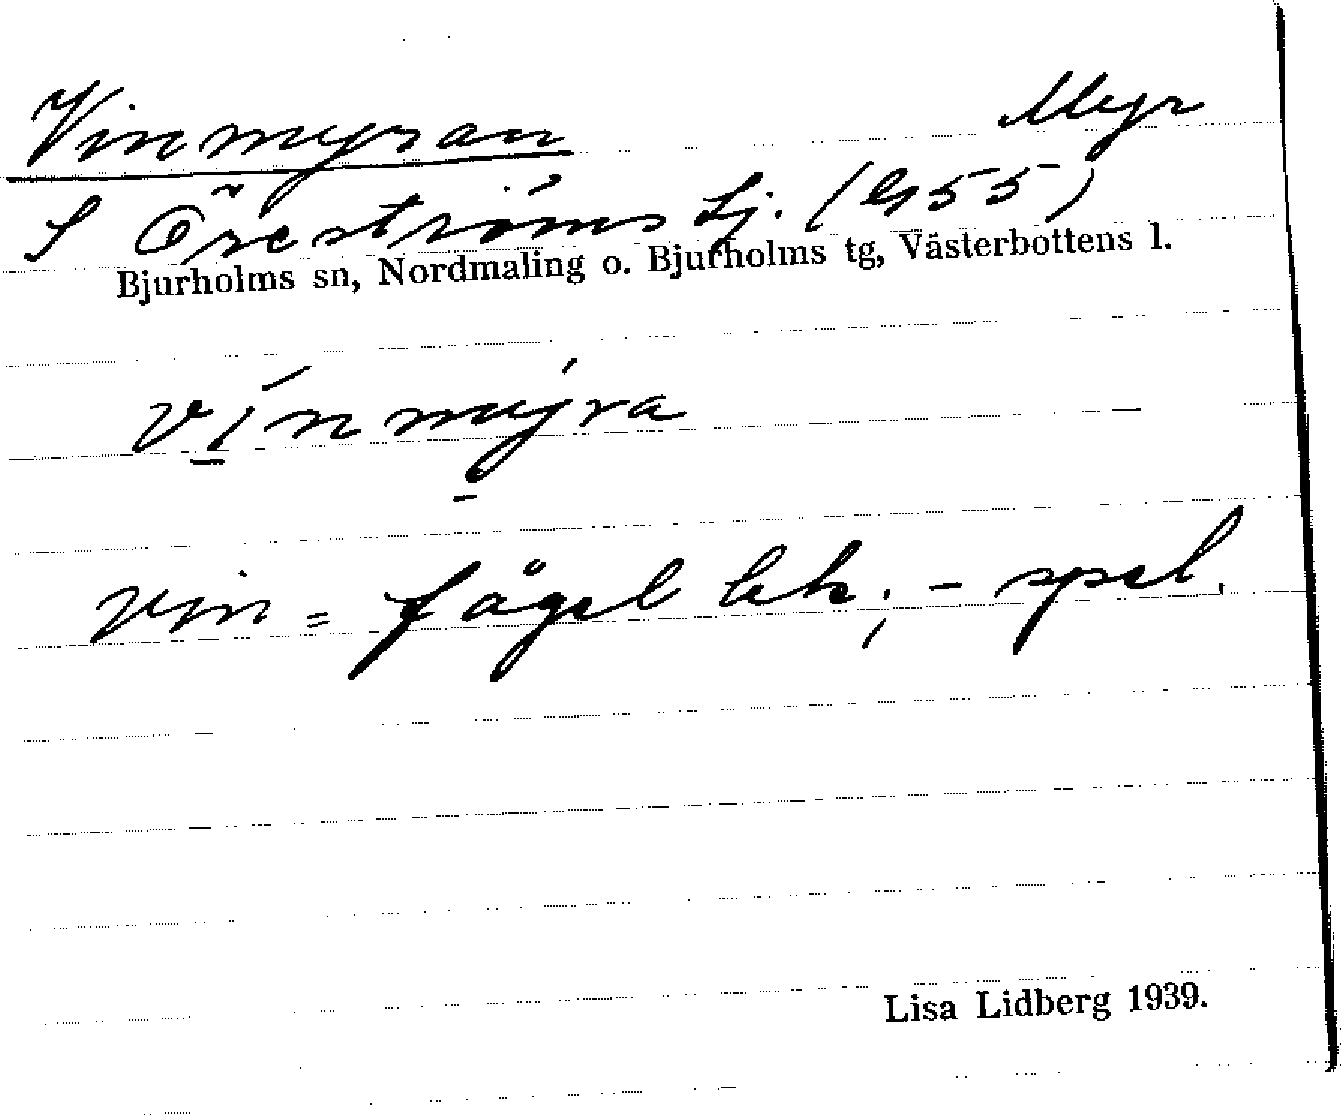 Vinmyran Myr
S Öreströms Lj. (G55)
Bjurholms sn, Nordmaling o. Bjurholms tg, Västerbottens l.
vínmýra
vin = fågellek, - spel.
Lisa Lidberg 1939.